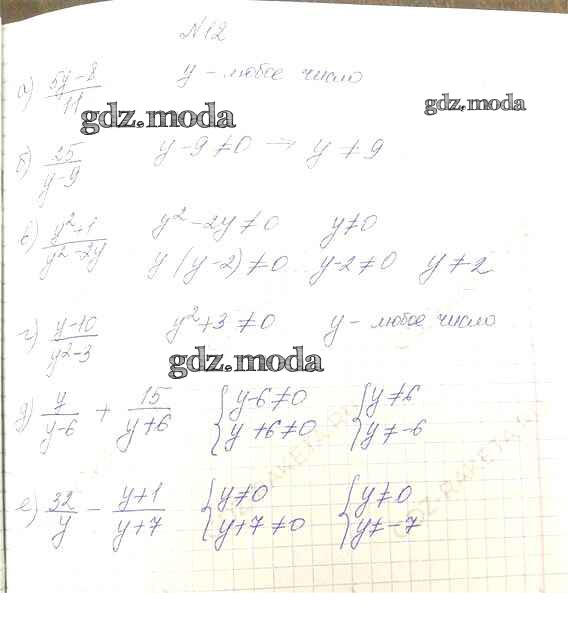 N12
а) (5y-8)/11 y - любое число
gdz.moda
gdz.moda
б) 25/(y-9) y-9≠0 → y≠9
в) (y²+1)/(y²-2y) y²-2y≠0 y≠0
y(y-2)≠0 y-2≠0 y≠2
г) (y-10)/(y²-3) y²+3≠0 y - любое число
gdz.moda
д) y/(y-6) + 15/(y+6) {y-6≠0 {y≠6
y+6≠0 y≠-6
е) 32/y - (y+1)/(y+7) {y≠0 {y≠0
y+7≠0 y≠-7